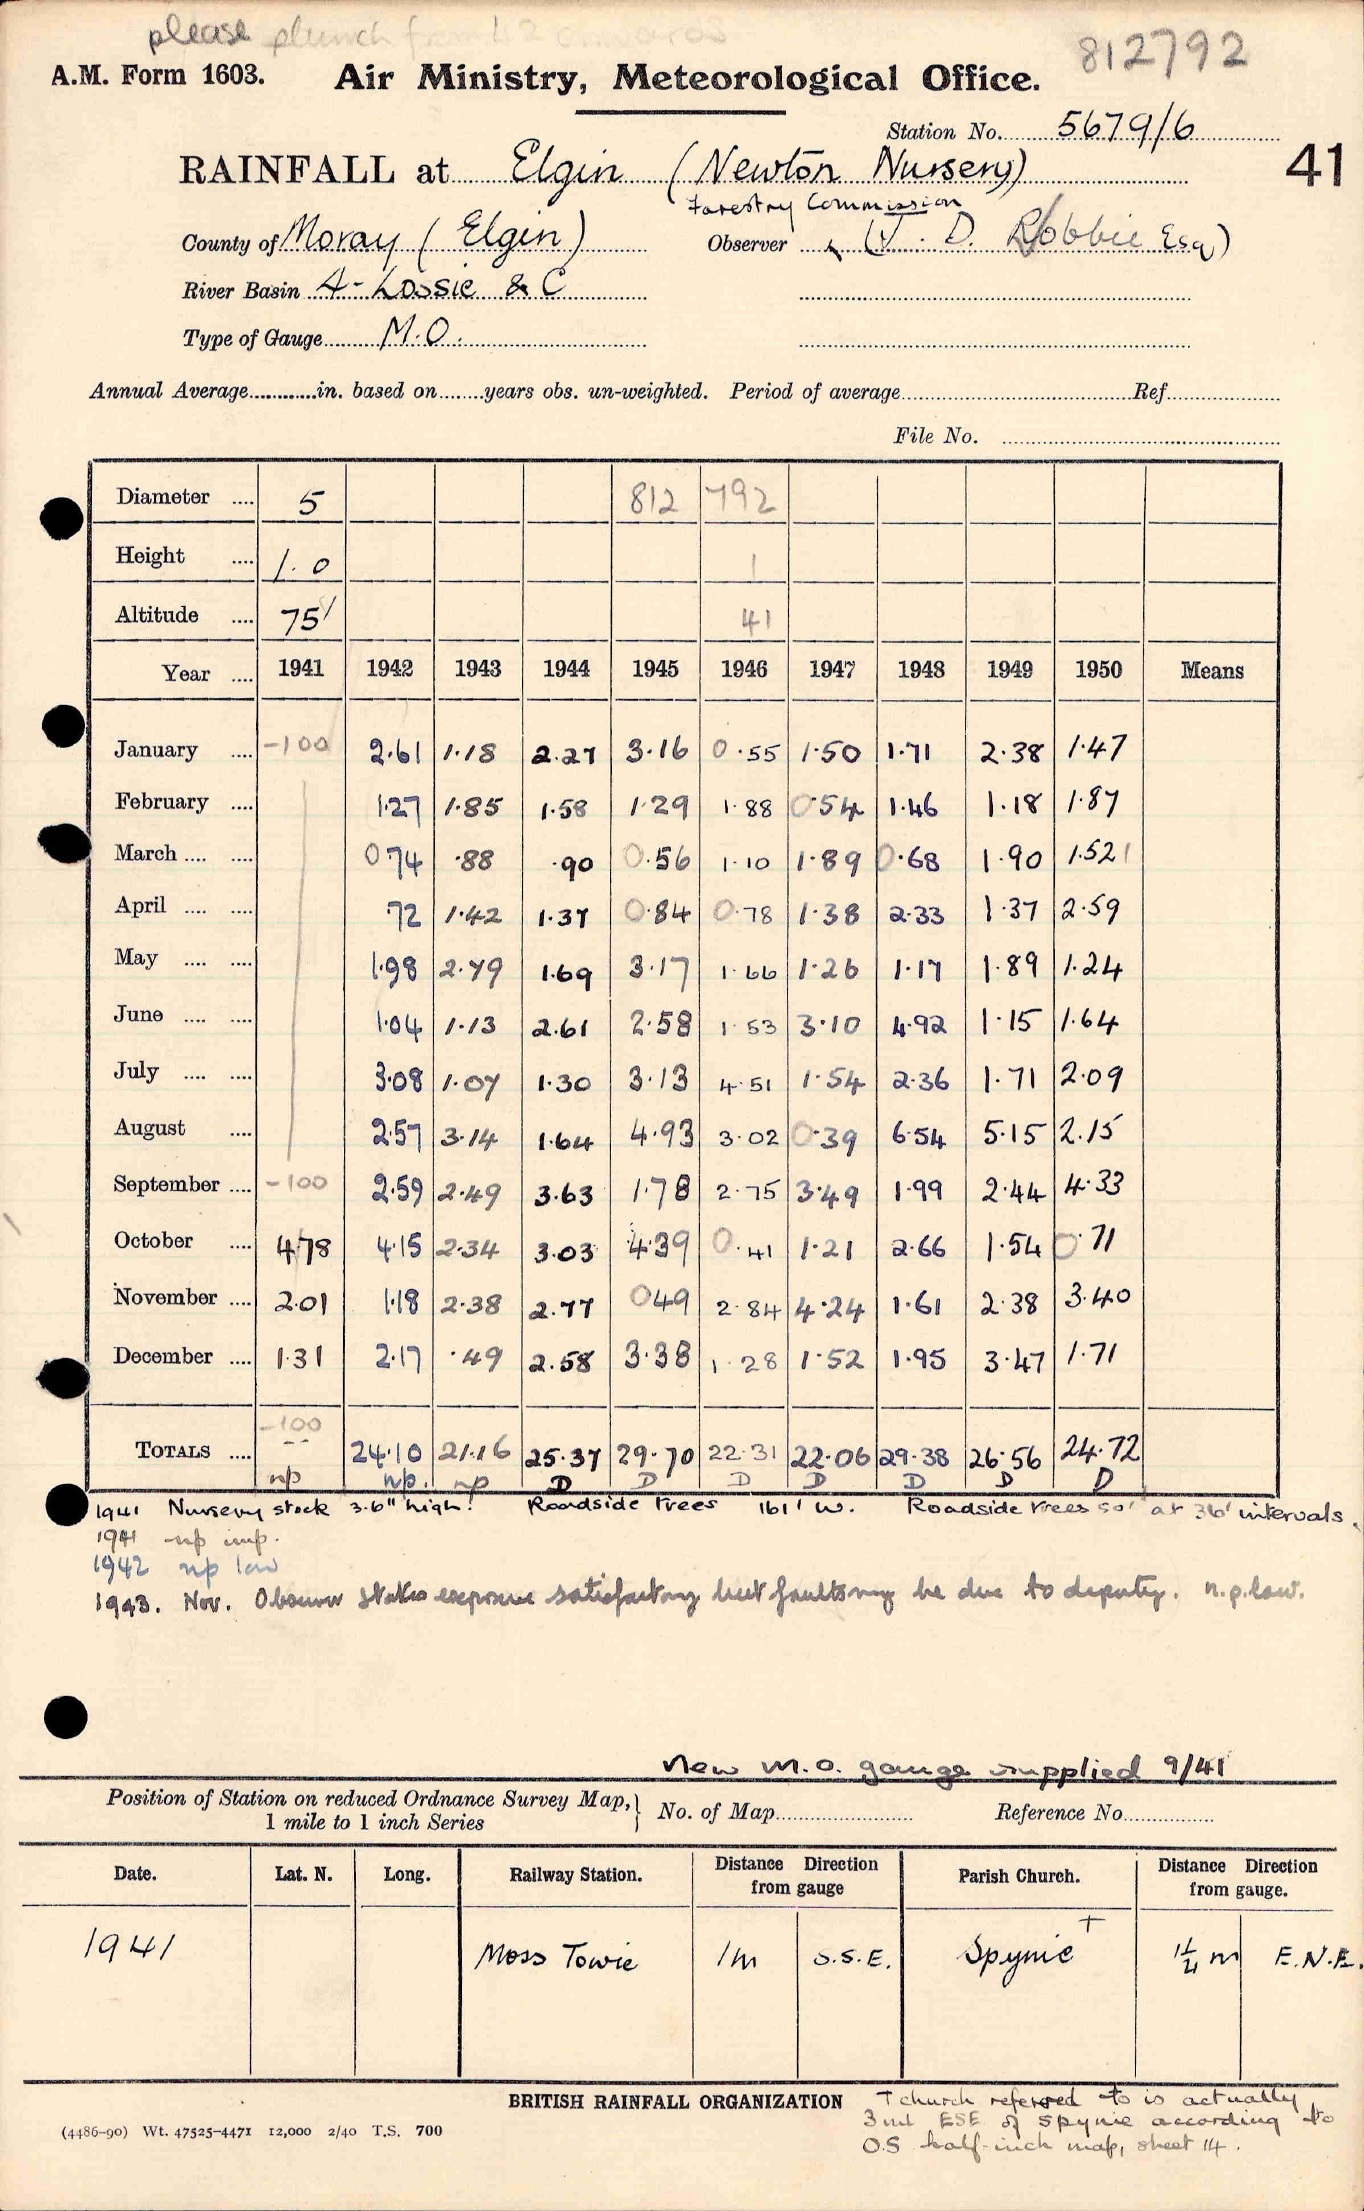 please plunch from 42 onwards
812792
A.M. Form 1603. Air Ministry, Meteorological Office.
Station No. 5679/6
41
RAINFALL at Elgin (Newton Nursery)
Forestry Commission
County of Moray (Elgin) Observer (J. D. Robbie Esq)
River Basin A - Lossie & C
Type of Gauge M.O.
Annual Average in. based on years obs. un-weighted. Period of average Ref.
File No.
Diameter .... 5 812 792
Height .... 1.0 1
Altitude .... 75' 41
Year .... 1941 1942 1943 1944 1945 1946 1947 1948 1949 1950 Means
January .... -100 2.61 1.18 2.27 3.16 0.55 1.50 1.71 2.38 1.47
February .... 1.27 1.85 1.58 1.29 1.88 0.54 1.46 1.18 1.87
March .... .... 0 74 .88 .90 0.56 1.10 1.89 0.68 1.90 1.521
April .... .... 72 1.42 1.37 0.84 0.78 1.38 2.33 1.37 2.59
May .... .... 1.98 2.79 1.69 3.17 1.66 1.26 1.17 1.89 1.24
June .... .... 1.04 1.13 2.61 2.58 1.53 3.10 4.92 1.15 1.64
July .... .... 3.08 1.07 1.30 3.13 4.51 1.54 2.36 1.71 2.09
August .... 2.57 3.14 1.64 4.93 3.02 0.39 6.54 5.15 2.15
September .... -100 2.59 2.49 3.63 1.78 2.75 3.49 1.99 2.44 4.33
October .... 4.78 4.15 2.34 3.03 4.39 0.41 1.21 2.66 1.54 0.71
November .... 2.01 1.18 2.38 2.77 049 2.84 4.24 1.61 2.38 3.40
December .... 1.31 2.17 .49 2.58 3.38 1.28 1.52 1.95 3.47 1.71
-100
TOTALS .... -- 24.10 21.16 25.37 29.70 22.31 22.06 29.38 26.56 24.72
np np. np D D D D D D D
1941 Nursery stock 3.6" high. Roadside trees 161' W. Roadside trees 50' at 36' intervals.
1941 np imp.
1942 np low
1943. Nov. Observer states exposure satisfactory but faults may be due to deputy. n.p. low.
New M.O. gauge supplied 9/41
Position of Station on reduced Ordnance Survey Map, } No. of Map Reference No.
1 mile to 1 inch Series
Date. Lat. N. Long. Railway Station. Distance Direction from gauge Parish Church. Distance Direction from gauge.
1941 Moss Towie 1m S.S.E. Spynie + 1¼ m E.N.E.
BRITISH RAINFALL ORGANIZATION
† church referred to is actually
3 ml ESE of Spynie according to
O.S half-inch map, sheet 14.
(4486-90) Wt. 47525-4471 12,000 2/40 T.S. 700